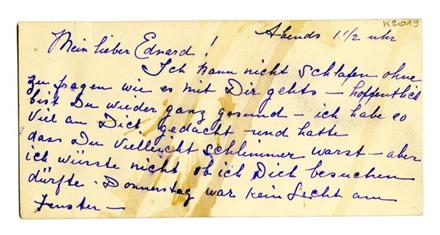 K2019
Abends 1 1/2 uhr
Mein lieber Edvard!
Ich kann nicht schlafen ohne
zu fragen wie es mit Dir gehts – hoffentlich
bist Du wieder ganz gesund – ich habe so
viel an Dich gedacht – und hatte
dass Du vielleicht schlimmer warst – aber
ich wüsste nicht ob ich Dich besuchen
dürfte. Donnerstag war kein Licht am
Fenster –